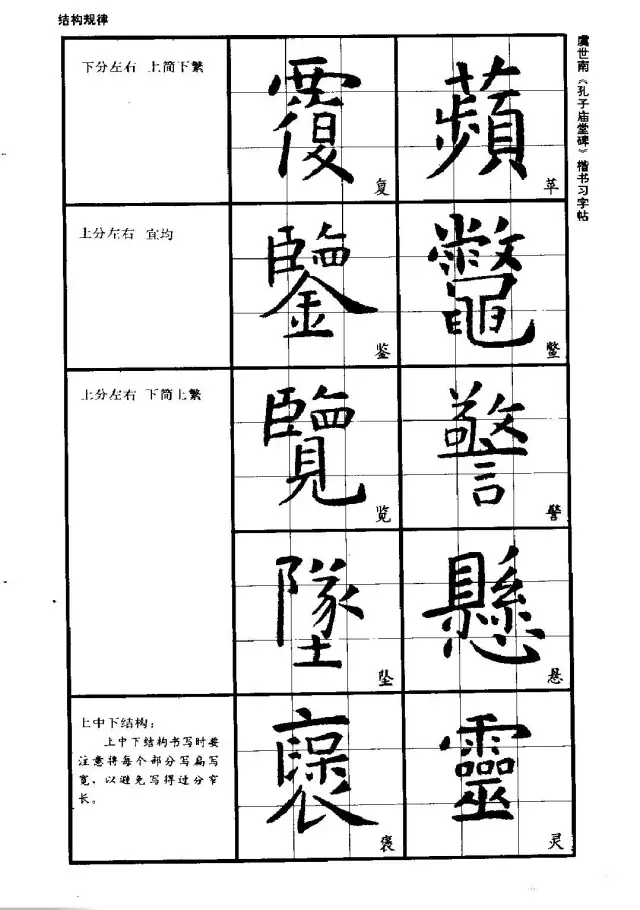 结构规律
虞世南《孔子庙堂碑》楷书习字帖
下分左右 上简下繁
覆 复
蘋 苹
上分左右 宜均
鑒 鉴
鼈 鳖
上分左右 下简上繁
覽 览
警 警
墜 坠
懸 悬
上中下结构：
上中下结构书写时要
注意将每个部分写扁写
宽，以避免写得过分窄
长。
褒 褒
靈 灵